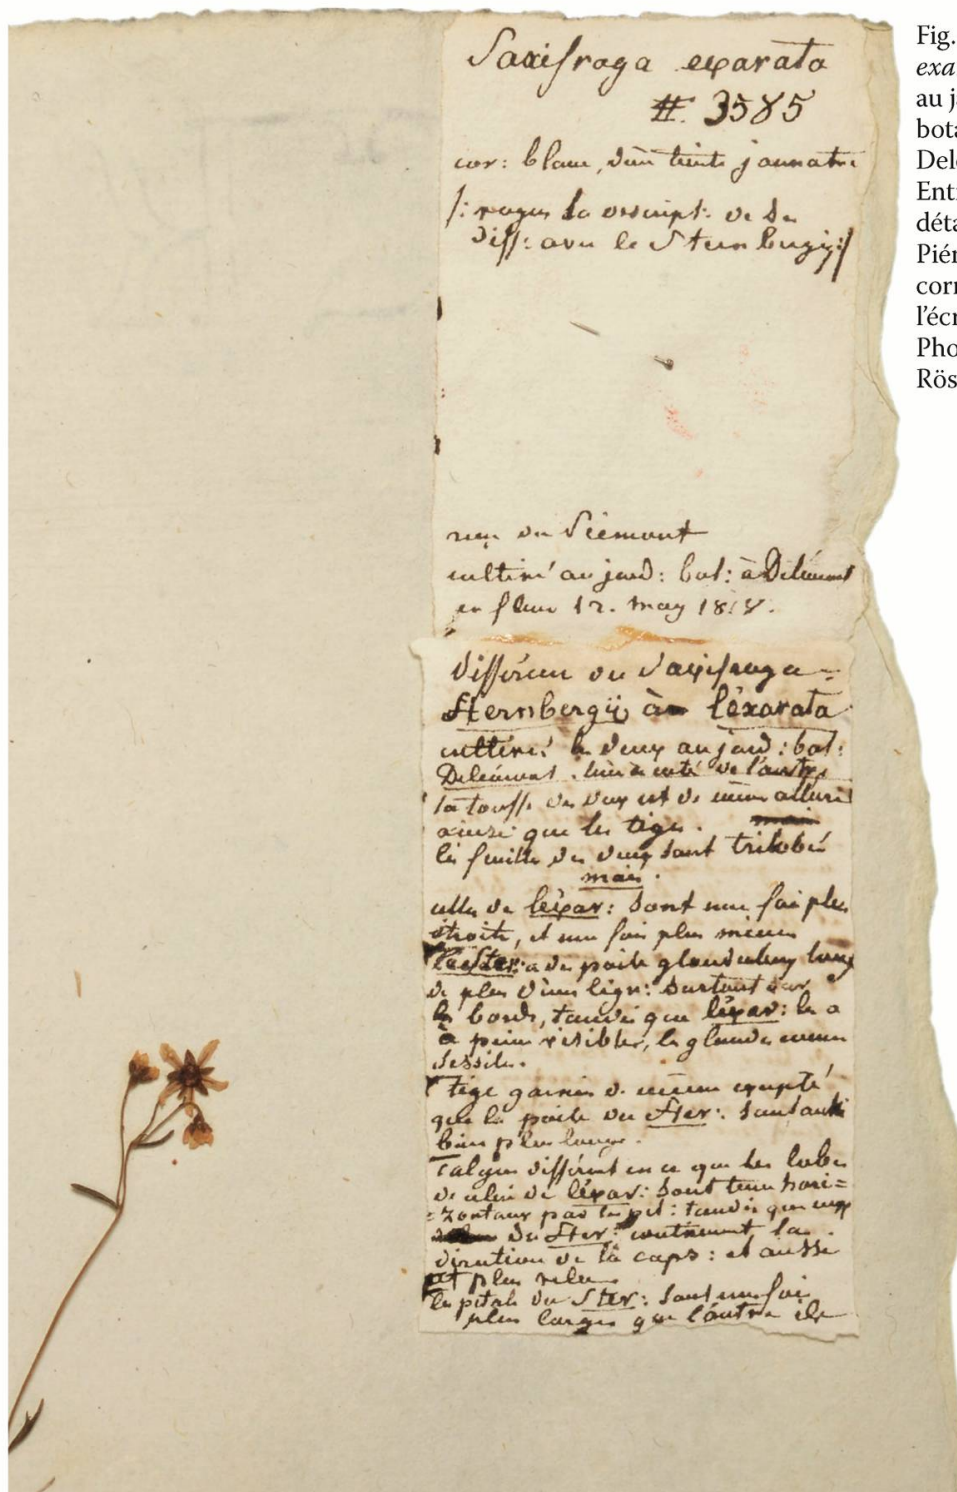 Saxifraga exarata
#. 3585
cor: blanc, d'un teinte jaunatre
/: voyez la descript: de sa
diff: avec le Sternbergij :/
reçu du Piemont
cultivé au jard: bot: à Delémont
en fleur 12. may 1818.
différence du Saxifraga =
Sternbergij à léxarata
cultivé les deux au jard: bot:
Delémont. l'un à coté de l'autre
la touffe des deux est de même allure
ainsi que les tiges.
les feuilles des deux sont trilobés
mais.
celles de léxar: sont une fois plus
étroite, et une fois plus minces
le Ster: a des poils glanduleux long
de plus d'une lign: surtout sur
les bords, tandis que léxar: les a
à peine visibles, les glandes même
sessiles.
Tige garnies de même excepté
que les poils du Ster: sont aussi
bien plus longs.
Calyces différent en ce que les lobes
de celui de léxar: sont tenu hori=
=zontaux par les pet: tandis que ceux
du Ster: soutiennent la
direction de la caps: et aussi
plus velu
les petals du Ster: sont une fois
plus larges que l'autre
Fig.
exa
au j
bota
Delé
Entr
déta
Piér
corr
l'écr
Pho
Rös